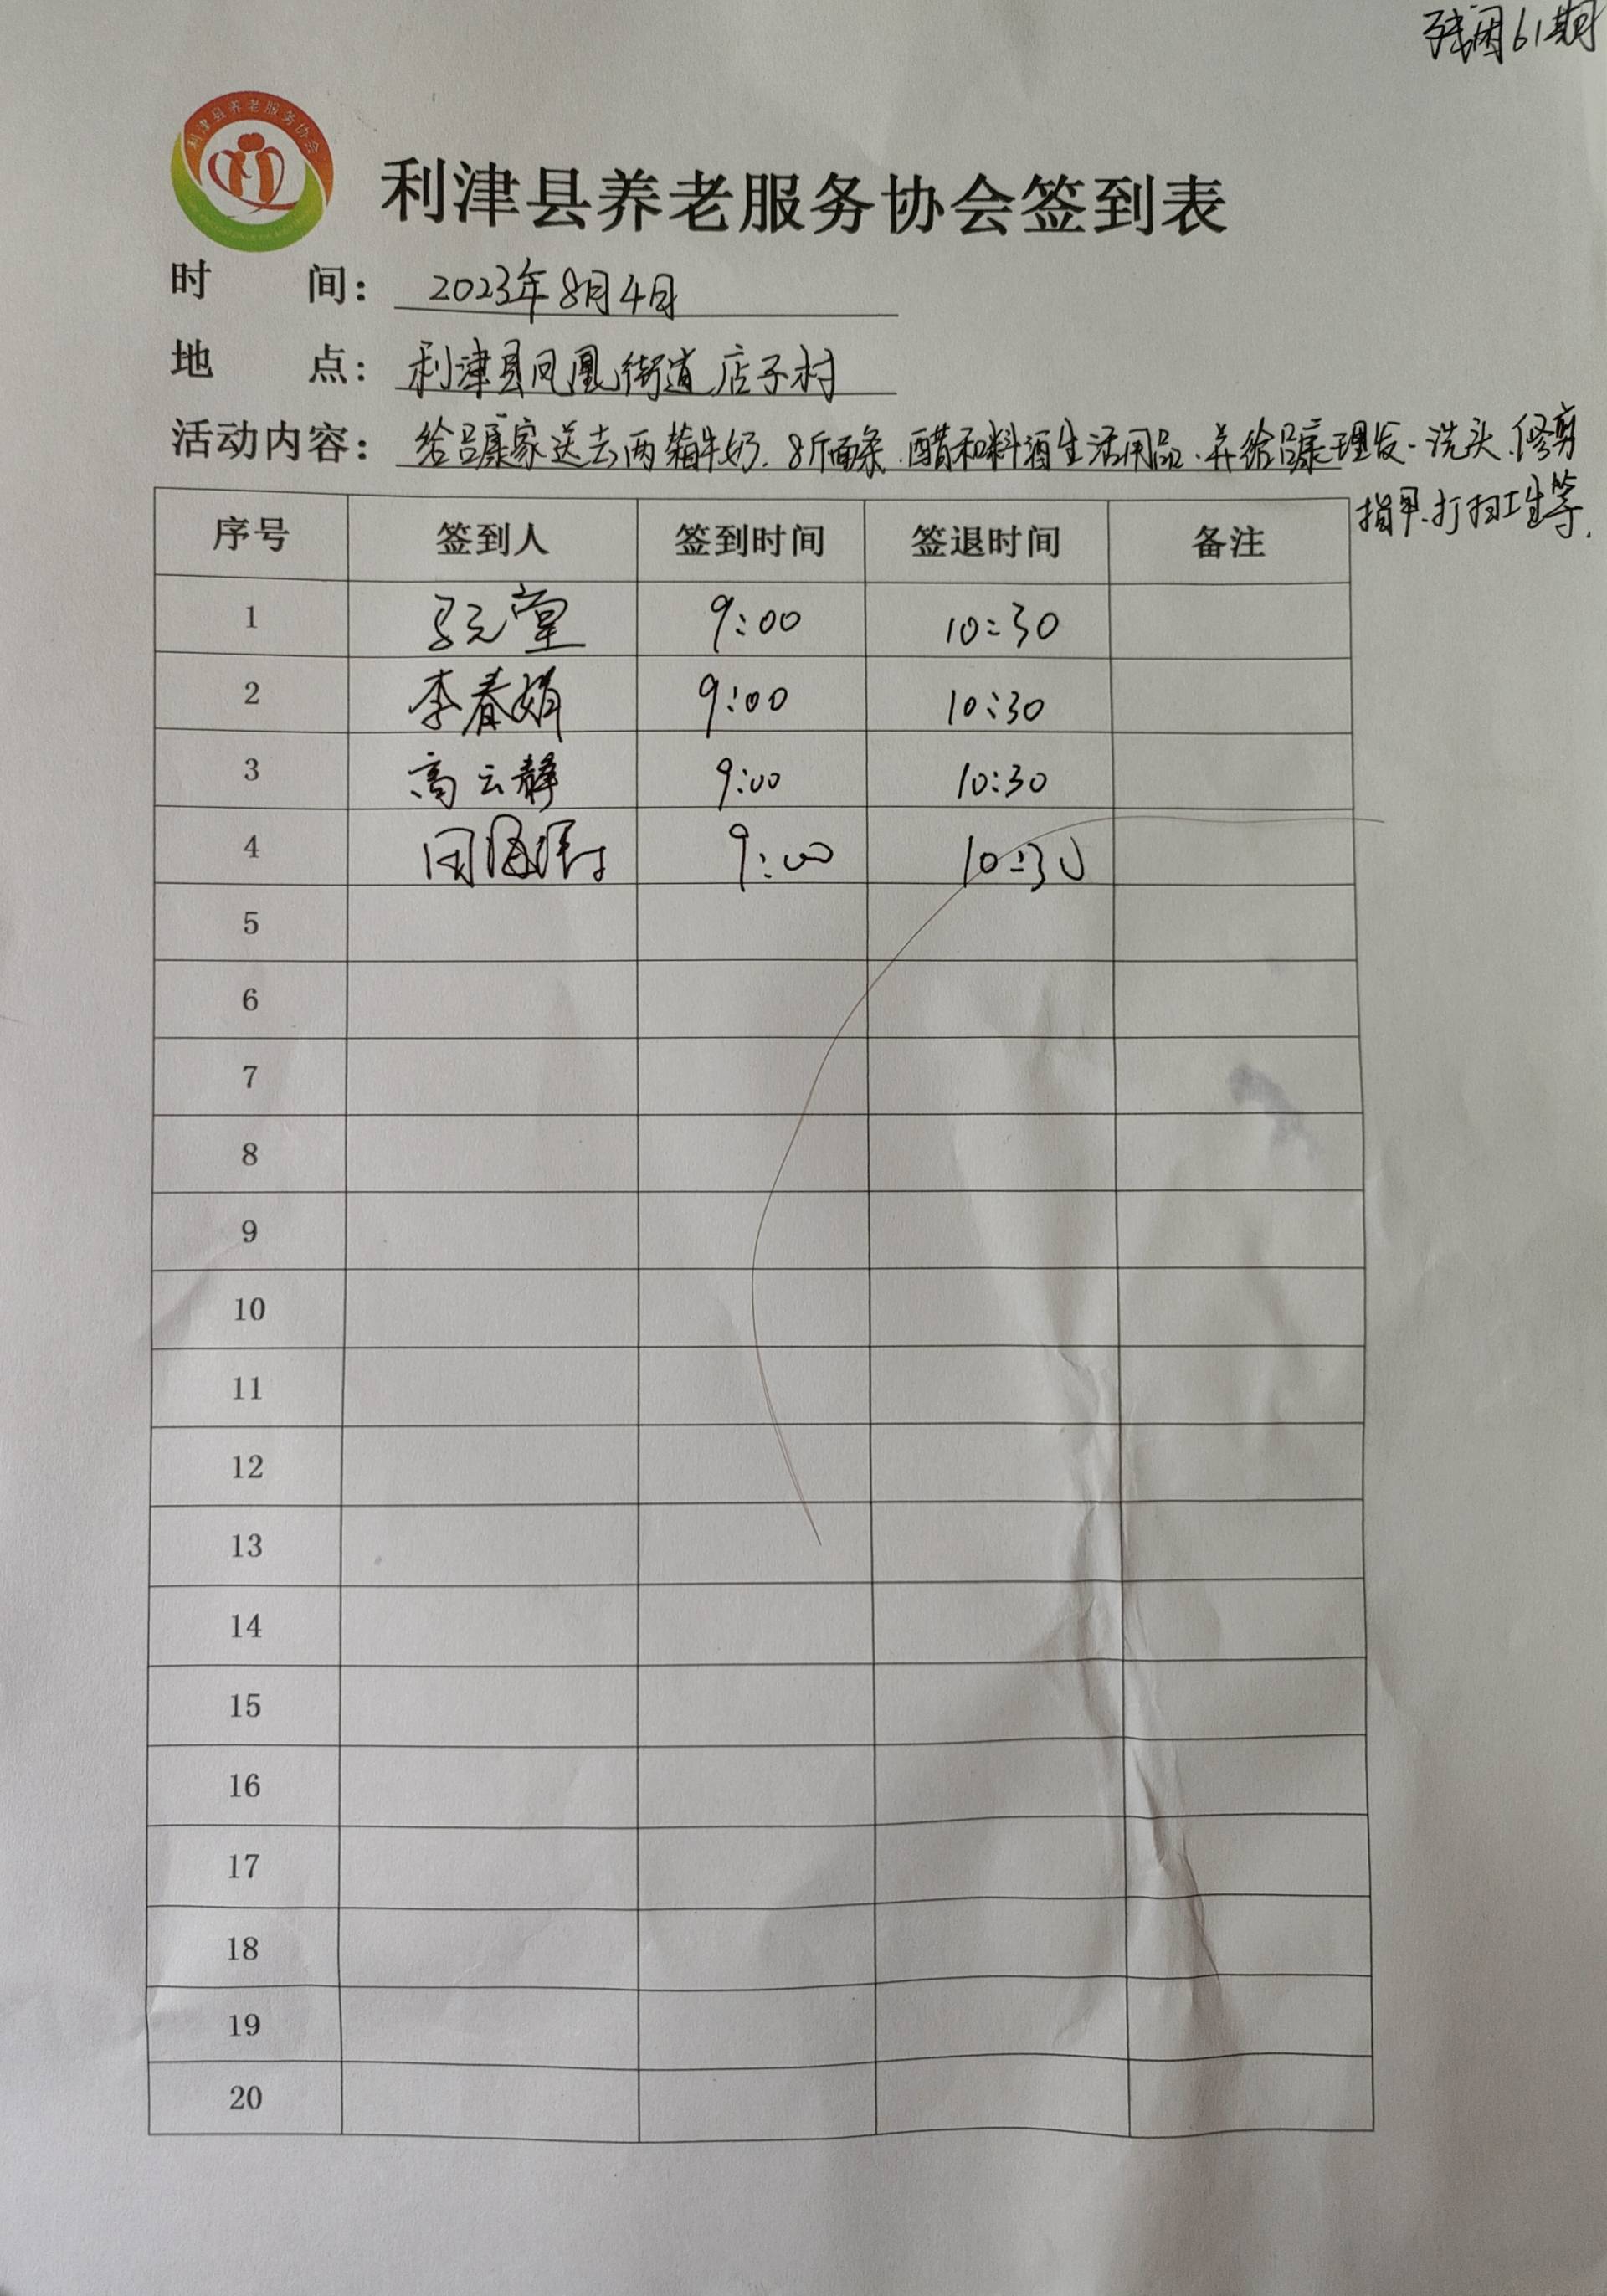 残困61期
利津县养老服务协会
利津县养老服务协会签到表
时 间： 2023年8月4日
地 点： 利津县凤凰街道店子村
活动内容： 给吕康家送去两箱牛奶、8斤面条、醋和料酒生活用品、并给吕康理发、洗头、修剪
指甲、打扫卫生等.
序号 签到人 签到时间 签退时间 备注
1 9:00 10:30
2 李春娟 9:00 10:30
3 高云静 9:00 10:30
4 9:00 10:30
5
6
7
8
9
10
11
12
13
14
15
16
17
18
19
20